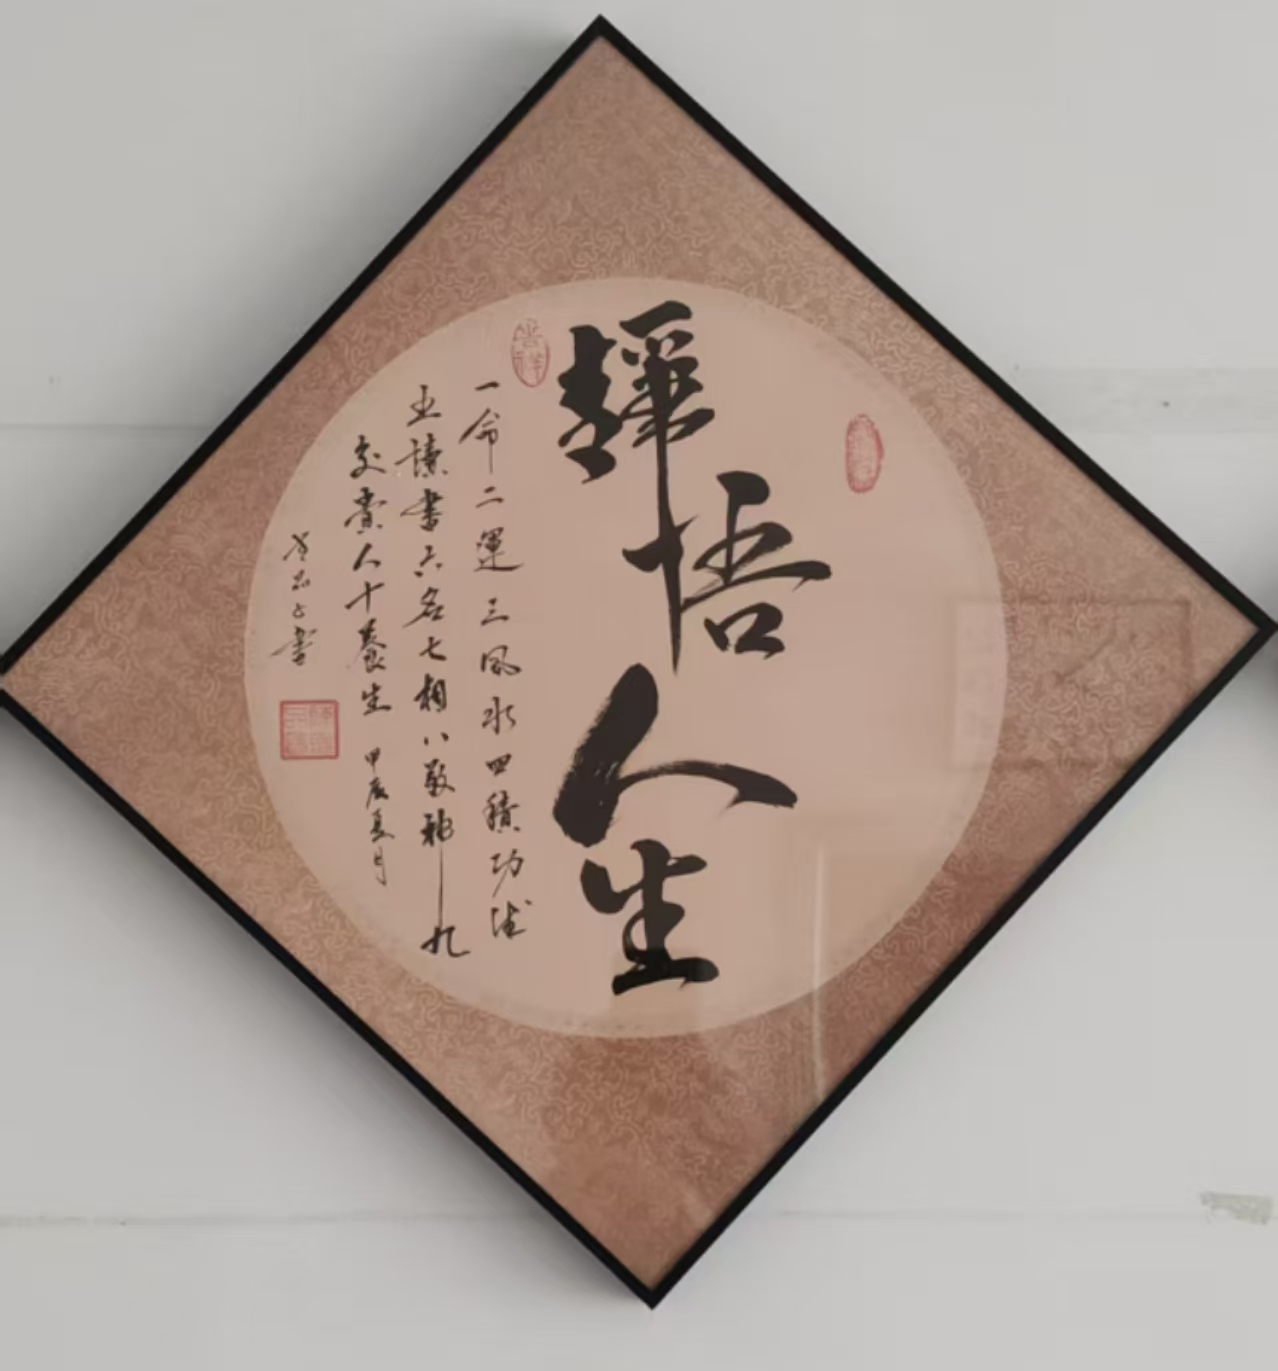 静悟
人生
一命二運三风水四積功德
五讀書六名七相八敬神九
交貴人十養生 甲辰夏月
吉祥